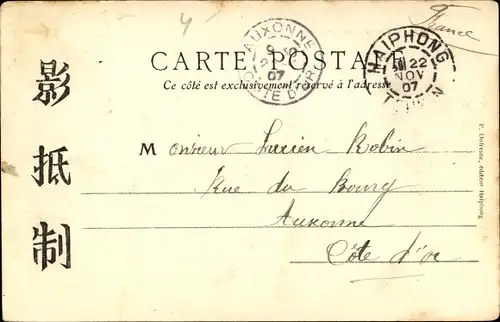 France
CARTE POSTALE
Ce côté est exclusivement réservé à l'adresse
AUXONNE
07
CÔTE D'OR
HAIPHONG
22
NOV
07
TONKIN
影
抵
制
Monsieur Lucien Robin
Rue du Bourg
Auxonne
Côte d'Or
P. Dufresne, éditeur Haiphong